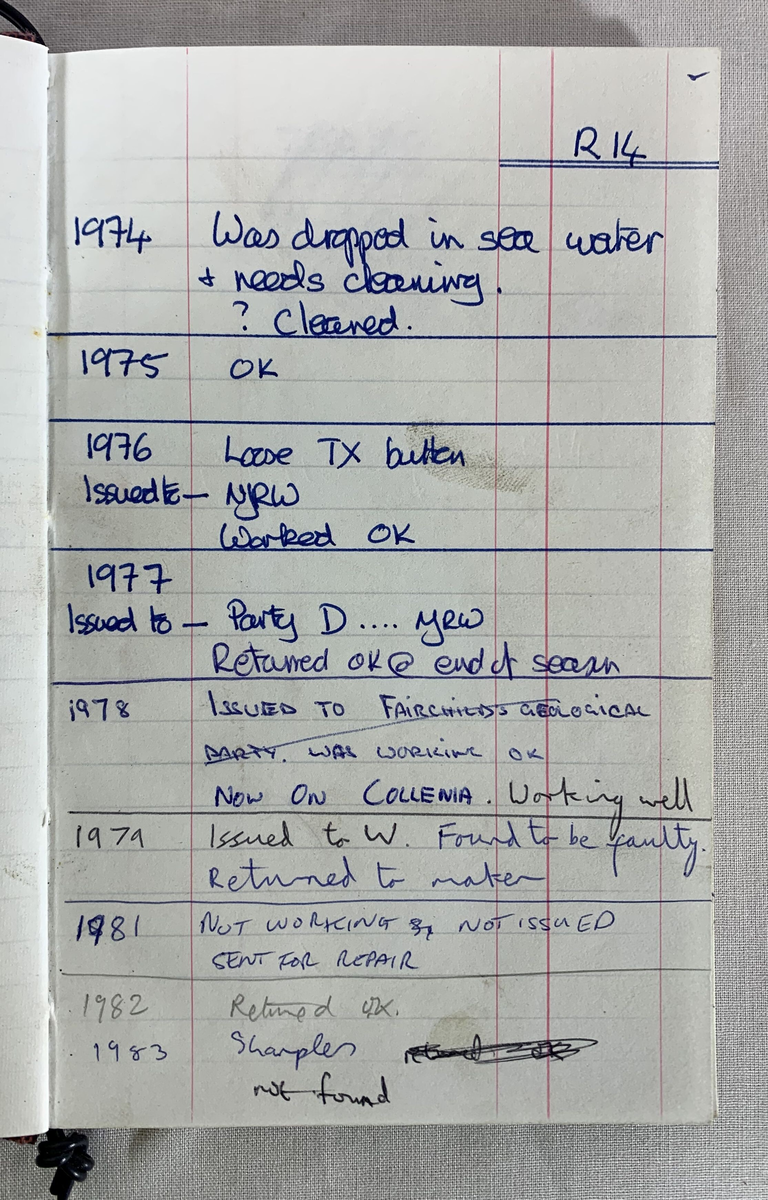 R 14
1974 Was dropped in sea water
+ needs cleaning.
? Cleaned.
1975 OK
1976 Loose TX button
Issued to — NJRW
Worked OK
1977
Issued to — Party D .... NJRW
Returned OK @ end of season
1978 ISSUED TO FAIRCHILD'S GEOLOGICAL
PARTY. WAS WORKING OK
NOW ON COLLENIA. Working well
1979 Issued to W. Found to be faulty.
Returned to maker
1981 NOT WORKING & NOT ISSUED
SENT FOR REPAIR
1982 Returned OK.
1983 Sharples
not found